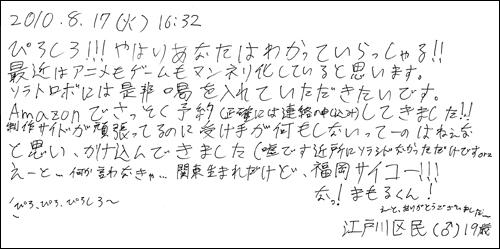 2010.8.17(火) 16:32
ぴろしろ!!!やはりあなたはわかっていらっしゃる!!
最近はアニメもゲームもマンネリ化していると思います。
ソラトロボには是非喝を入れていただきたいです。
Amazonでさっそく予約(正確には連絡の申し込み)してきました!!
制作サイドが頑張ってるのに受け手が何もしないってーのはねぇな
と思い、かけ込んできました(嘘です近所にソラシドなかっただけですorz
えーと…何か言わなきゃ…関東生まれだけど、福岡サイコー!!!
なっ!まもるくん!
ぴろ、ぴろ、ぴろしろ〜
えーと、ありがとうございましたー
江戸川区民(♂)19歳